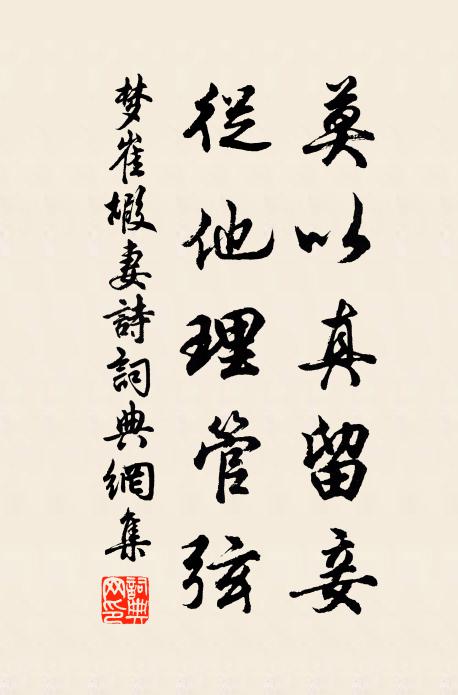 莫以真留妾
從他理管弦
梦崔椵妻詩詞典網集
詞典
网印